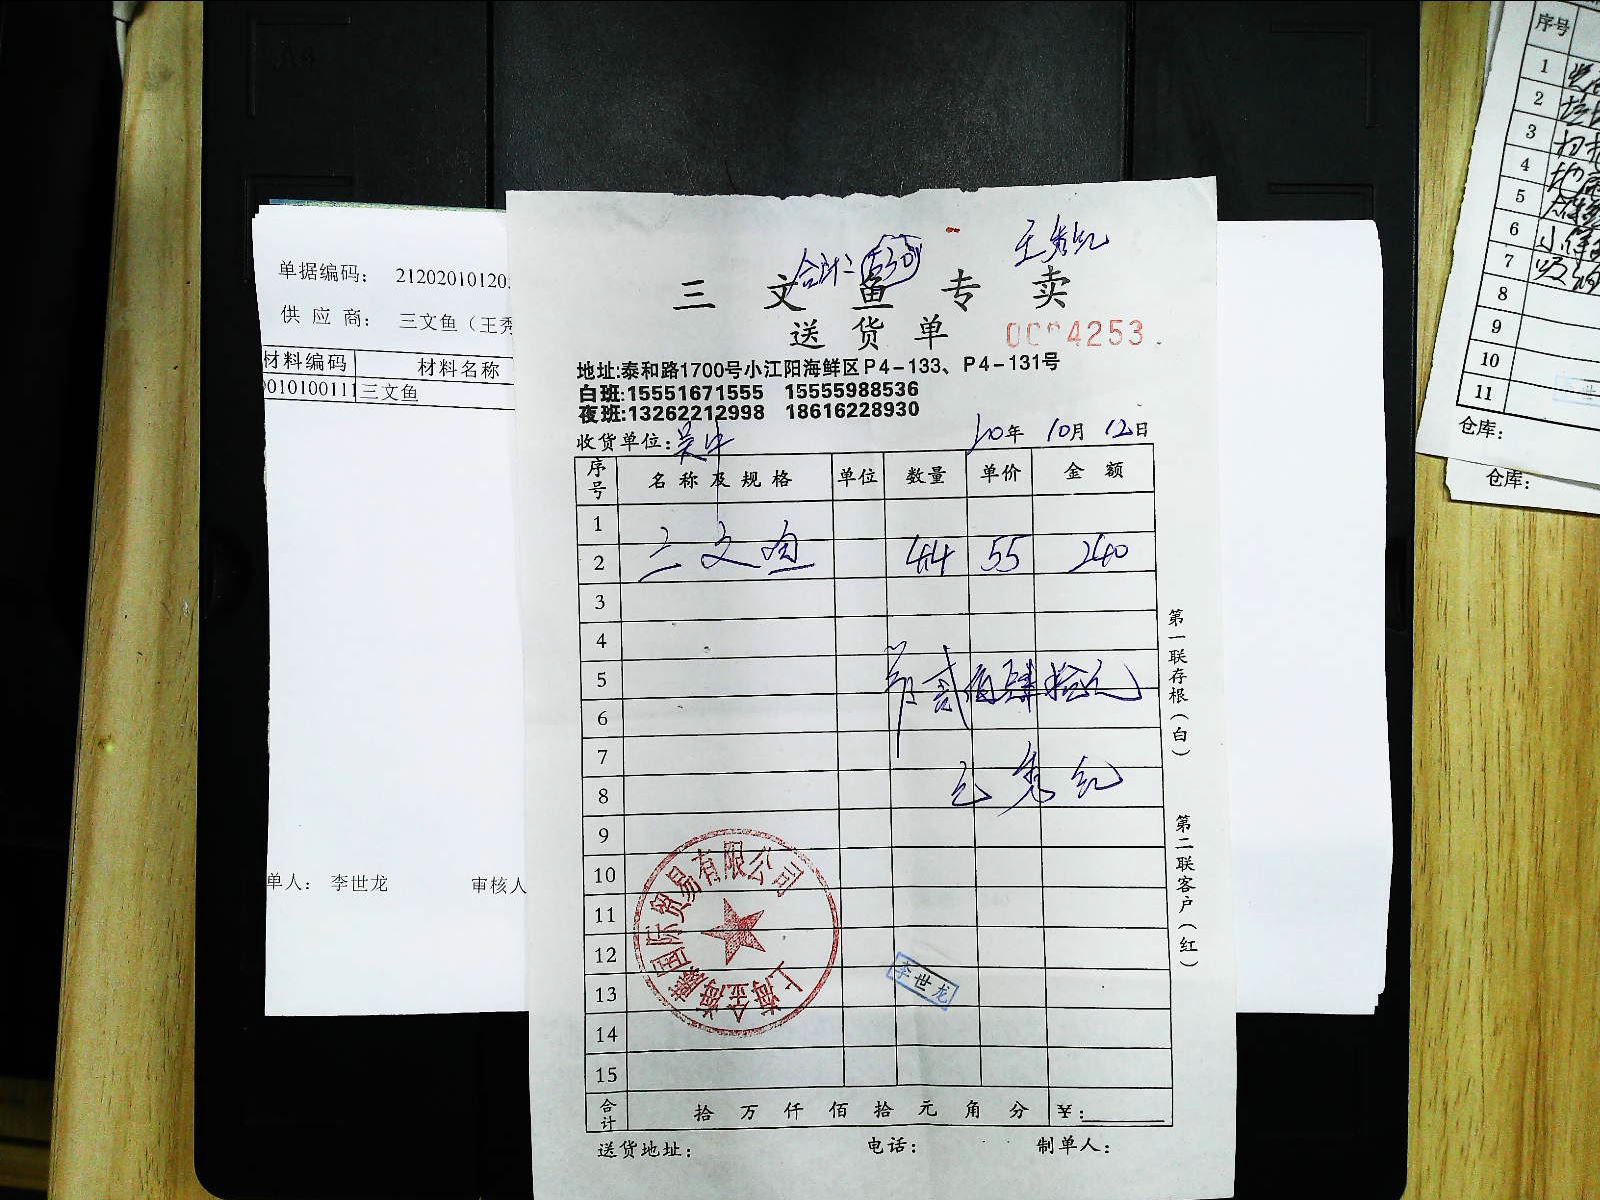 合计: 530
王秀纪
三文鱼专卖
送货单
4253
地址:泰和路1700号小江阳海鲜区P4-133、P4-131号
白班:15551671555 15555988536
夜班:13262212998 18616228930
收货单位:吴中
20年 10月 12日
序号 名称及规格 单位 数量 单价 金额
1
2 三文鱼 44 55 240
3
4
5 贰佰肆拾元
6
7
8 王秀纪
9
10
11
12
13
14
15
合计 拾 万 仟 佰 拾 元 角 分 ¥:
送货地址: 电话: 制单人:
第一联存根(白)
第二联客户(红)
上海金海腾国际贸易有限公司
李世龙
单据编码: 21202010120
供应商: 三文鱼(王秀
材料编码 材料名称
010100111 三文鱼
单人: 李世龙 审核人
序号
1
2
3
4
5
6
7
8
9
10
11
仓库:
仓库: